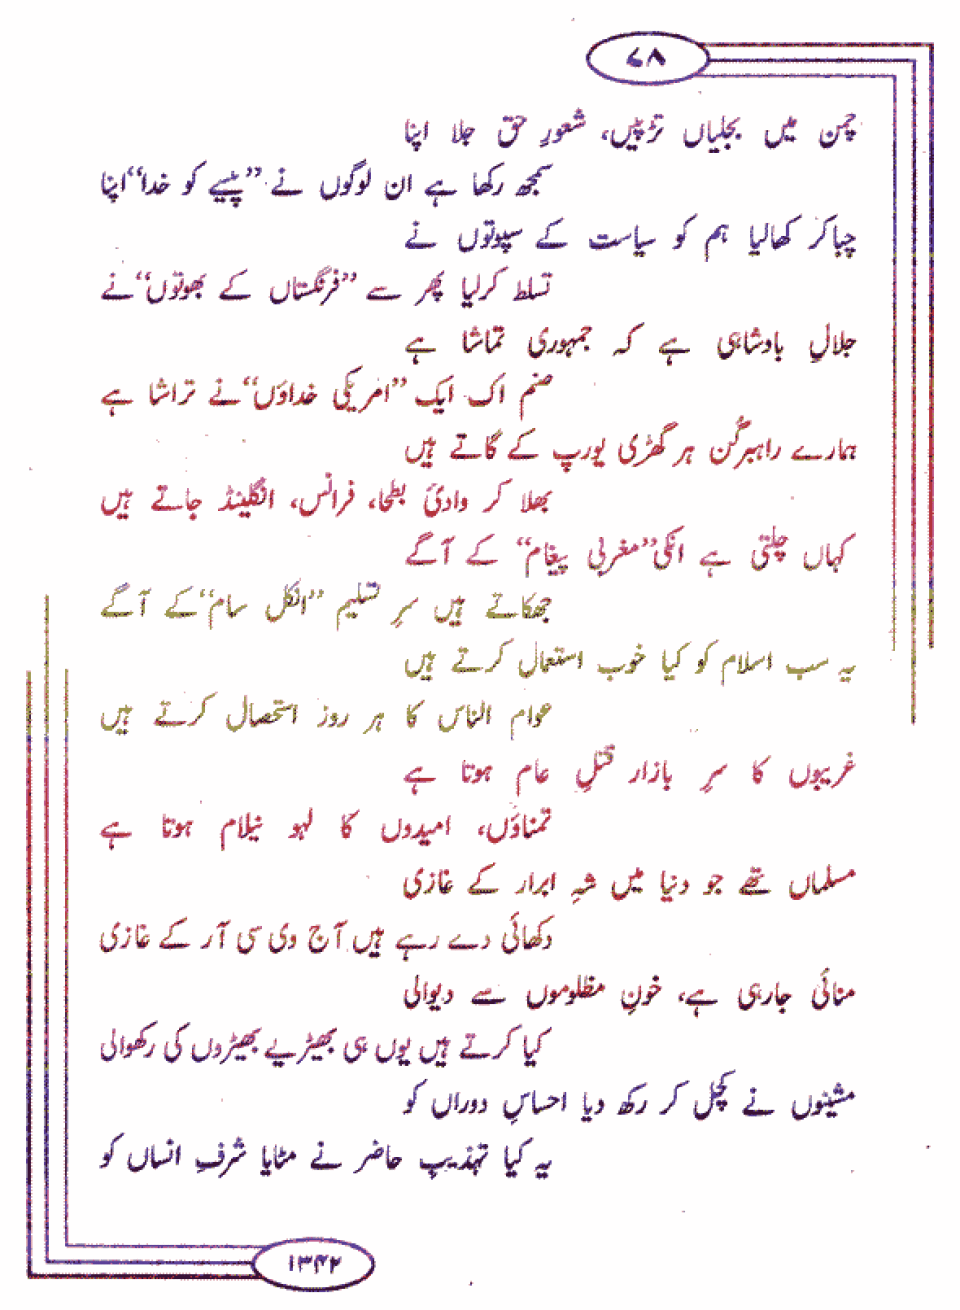 ۶۸
چمن میں بجلیاں تڑپیں، شعورِ حق جلا اپنا
سمجھ رکھا ہے ان لوگوں نے ”پیسے کو خدا“ اپنا
چباکر کھالیا ہم کو سیاست کے سپوتوں نے
تسلط کرلیا پھر سے ”فرنگستاں کے بھوتوں“ نے
جلالِ بادشاہی ہے کہ جمہوری تماشا ہے
صنم اک ایک ”امریکی خداؤں“ نے تراشا ہے
ہمارے راہبر گُن ہر گھڑی یورپ کے گاتے ہیں
بھلا کر وادئ بطحا، فرانس، انگلینڈ جاتے ہیں
کہاں چلتی ہے انکی ”مغربی پیغام“ کے آگے
جھکاتے ہیں سرِ تسلیم ”انکل سام“ کے آگے
یہ سب اسلام کو کیا خوب استعمال کرتے ہیں
عوام الناس کا ہر روز استحصال کرتے ہیں
غریبوں کا سرِ بازار قتلِ عام ہوتا ہے
تمناؤں، امیدوں کا لہو نیلام ہوتا ہے
مسلماں تھے جو دنیا میں شہِ ابرار کے غازی
دکھائی دے رہے ہیں آج وی سی آر کے غازی
منائی جارہی ہے، خونِ مظلوموں سے دیوالی
کیا کرتے ہیں یوں ہی بھیڑیے بھیڑوں کی رکھوالی
مشینوں نے کچل کر رکھ دیا احساسِ دوراں کو
یہ کیا تہذیبِ حاضر نے مٹایا شرفِ انساں کو
۱۳۴۲